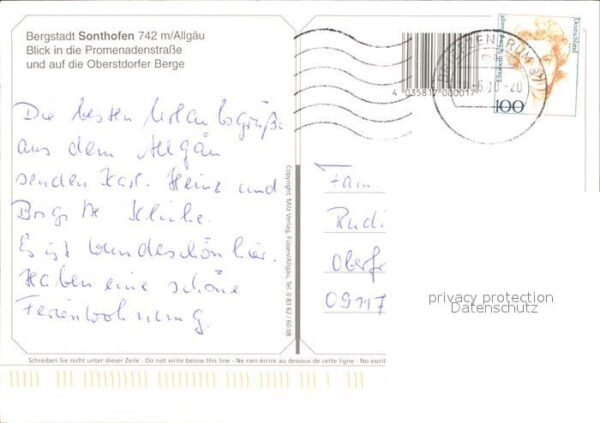 Bergstadt Sonthofen 742 m/Allgäu
Blick in die Promenadenstraße
und auf die Oberstdorfer Berge
Die besten Urlaubsgrüße
aus dem Allgäu
senden Karl Heinz und
Brigitte
Es ist wunderschön hier.
Haben eine schöne
Ferienwohnung.
Schreiben Sie nicht unter dieser Zeile - Do not write below this line - Ne rien écrire au dessous de cette ligne - No escrit
Copyright: Milz Verlag, Füssen/Allgäu, Tel. 0 83 62 / 60 08
4 035817 000017
BRIEFZENTRUM
Deutschland
100
Fam
Rudi
Oberfr
09117
privacy protection
Datenschutz